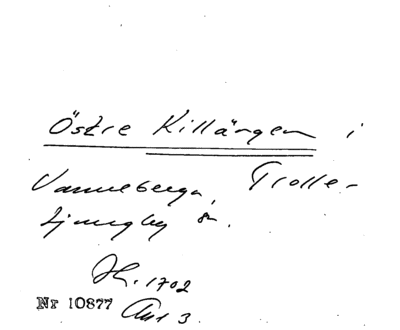 Östre Killängen i
Vanneberga, Trolle-
Ljungby sn.
H. 1702
Nr 10877 Akt 3.